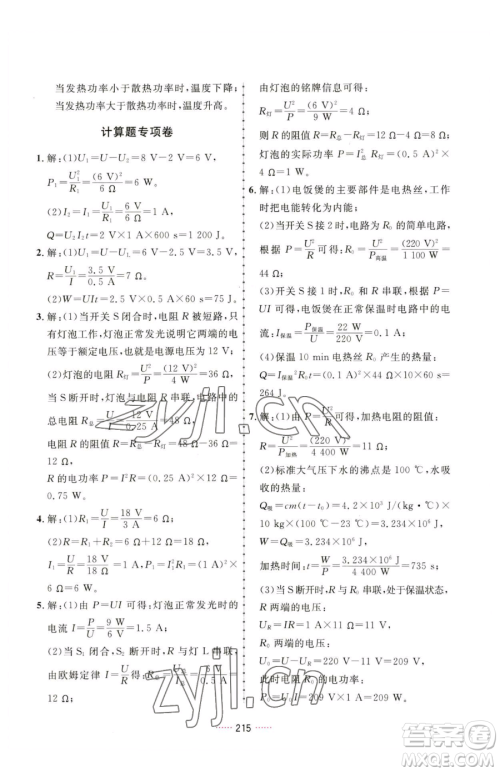 当发热功率小于散热功率时,温度下降;
当发热功率大于散热功率时,温度升高。
计算题专项卷
1. 解:(1)U₁=U-U₂=8 V-2 V=6 V,
P₁=U₁²/R₁=(6 V)²/6 Ω=6 W。
(2)I₂=I₁=U₁/R₁=6 V/6 Ω=1 A,
Q=U₂I₂t=2 V×1 A×600 s=1 200 J。
2. 解:(1)U₁=U-U_L=6 V-2.5 V=3.5 V,
R=U₁/I=3.5 V/0.5 A=7 Ω。
(2)W=UIt=2.5 V×0.5 A×60 s=75 J。
3. 解:(1)当开关 S 闭合时,电阻 R 被短路,只
有灯泡工作,灯泡正常发光说明它两端的电
压等于额定电压,也就是电源电压为 12 V;
(2)灯泡的电阻 R灯=U²/P=(12 V)²/4 W=36 Ω,
当 S 断开时,灯泡与电阻 R 串联,电路中的
总电阻 R总=U/I=12 V/0.25 A=48 Ω,
电阻 R 的阻值 R=48 Ω-36 Ω=12 Ω;
R 的电功率 P=I²R=(0.25 A)²×12 Ω=
0.75 W。
4. 解:(1)R₁=U/I=18 V/3 A=6 Ω;
(2)R=R₁+R₂=6 Ω+12 Ω=18 Ω,
I₁=U/R=18 V/18 Ω=1 A,P₁=I₁²R₁=(1 A)²×
6 Ω=6 W。
5. 解:(1)由 P=UI 可得:灯泡正常发光时的
电流 I=P/U=9 W/6 V=1.5 A。
(2)当开关 S 断开时,R 与灯 L 串联,
由欧姆定律 I=U/R 可得:R总=U/I=6 V/0.5 A=
12 Ω;
由灯泡的铭牌信息可得:
R灯=U²/P=(6 V)²/9 W=4 Ω;
则 R 的阻值 R=R总-R灯=12 Ω-4 Ω=8 Ω,
灯泡的实际功率 P=I²R灯=(0.5 A)²×
4 Ω=1 W。
6. 解:(1)电饭煲的主要部件是电热丝,工作
时把电能转化为内能;
(2)当开关 S 接 2 时,电路为 R₀ 的简单电路,
根据 P=U²/R 可得:R₀=U²/P高温=(220 V)²/1 100 W=
44 Ω;
(3)开关 S 接 1 时,电阻 R₀ 和 R 串联,
可得:电饭煲在正常保温时电路中的电流
I保温=P保温/U=22 W/220 V=0.1 A;
(4)保温 10 min 电热丝 R₀ 产生的热量:
Q=I保温²R₀t=(0.1 A)²×44 Ω×10×60 s=
264 J。
7. 解:(1)由 P=U²/R 可得,加热电阻的阻值:
R=U²/P=(220 V)²/4 400 W=11 Ω;
(2)标准大气压下水的沸点是 100 ℃,水吸
收的热量:
Q吸=cm(t-t₀)=4.2×10³ J/(kg·℃)×
(100 ℃-23 ℃)=3.234×10⁶ J;
加热时间:t=3.234×10⁶ J/4 400 W=735 s;
(3)当 S 断开时,R₀、R 串联,处于保温状态,
R 两端的电压:
U_R=IR=1 A×11 Ω=11 V,
R₀ 两端的电压:
U₀=U-U_R=220 V-11 V=209 V,
此时电阻 R₀ 的电功率:
P₀=U₀I=209 V×1 A=209 W。
zyjl.cn
zyjl.cn
215
答案圈
MXQE.COM